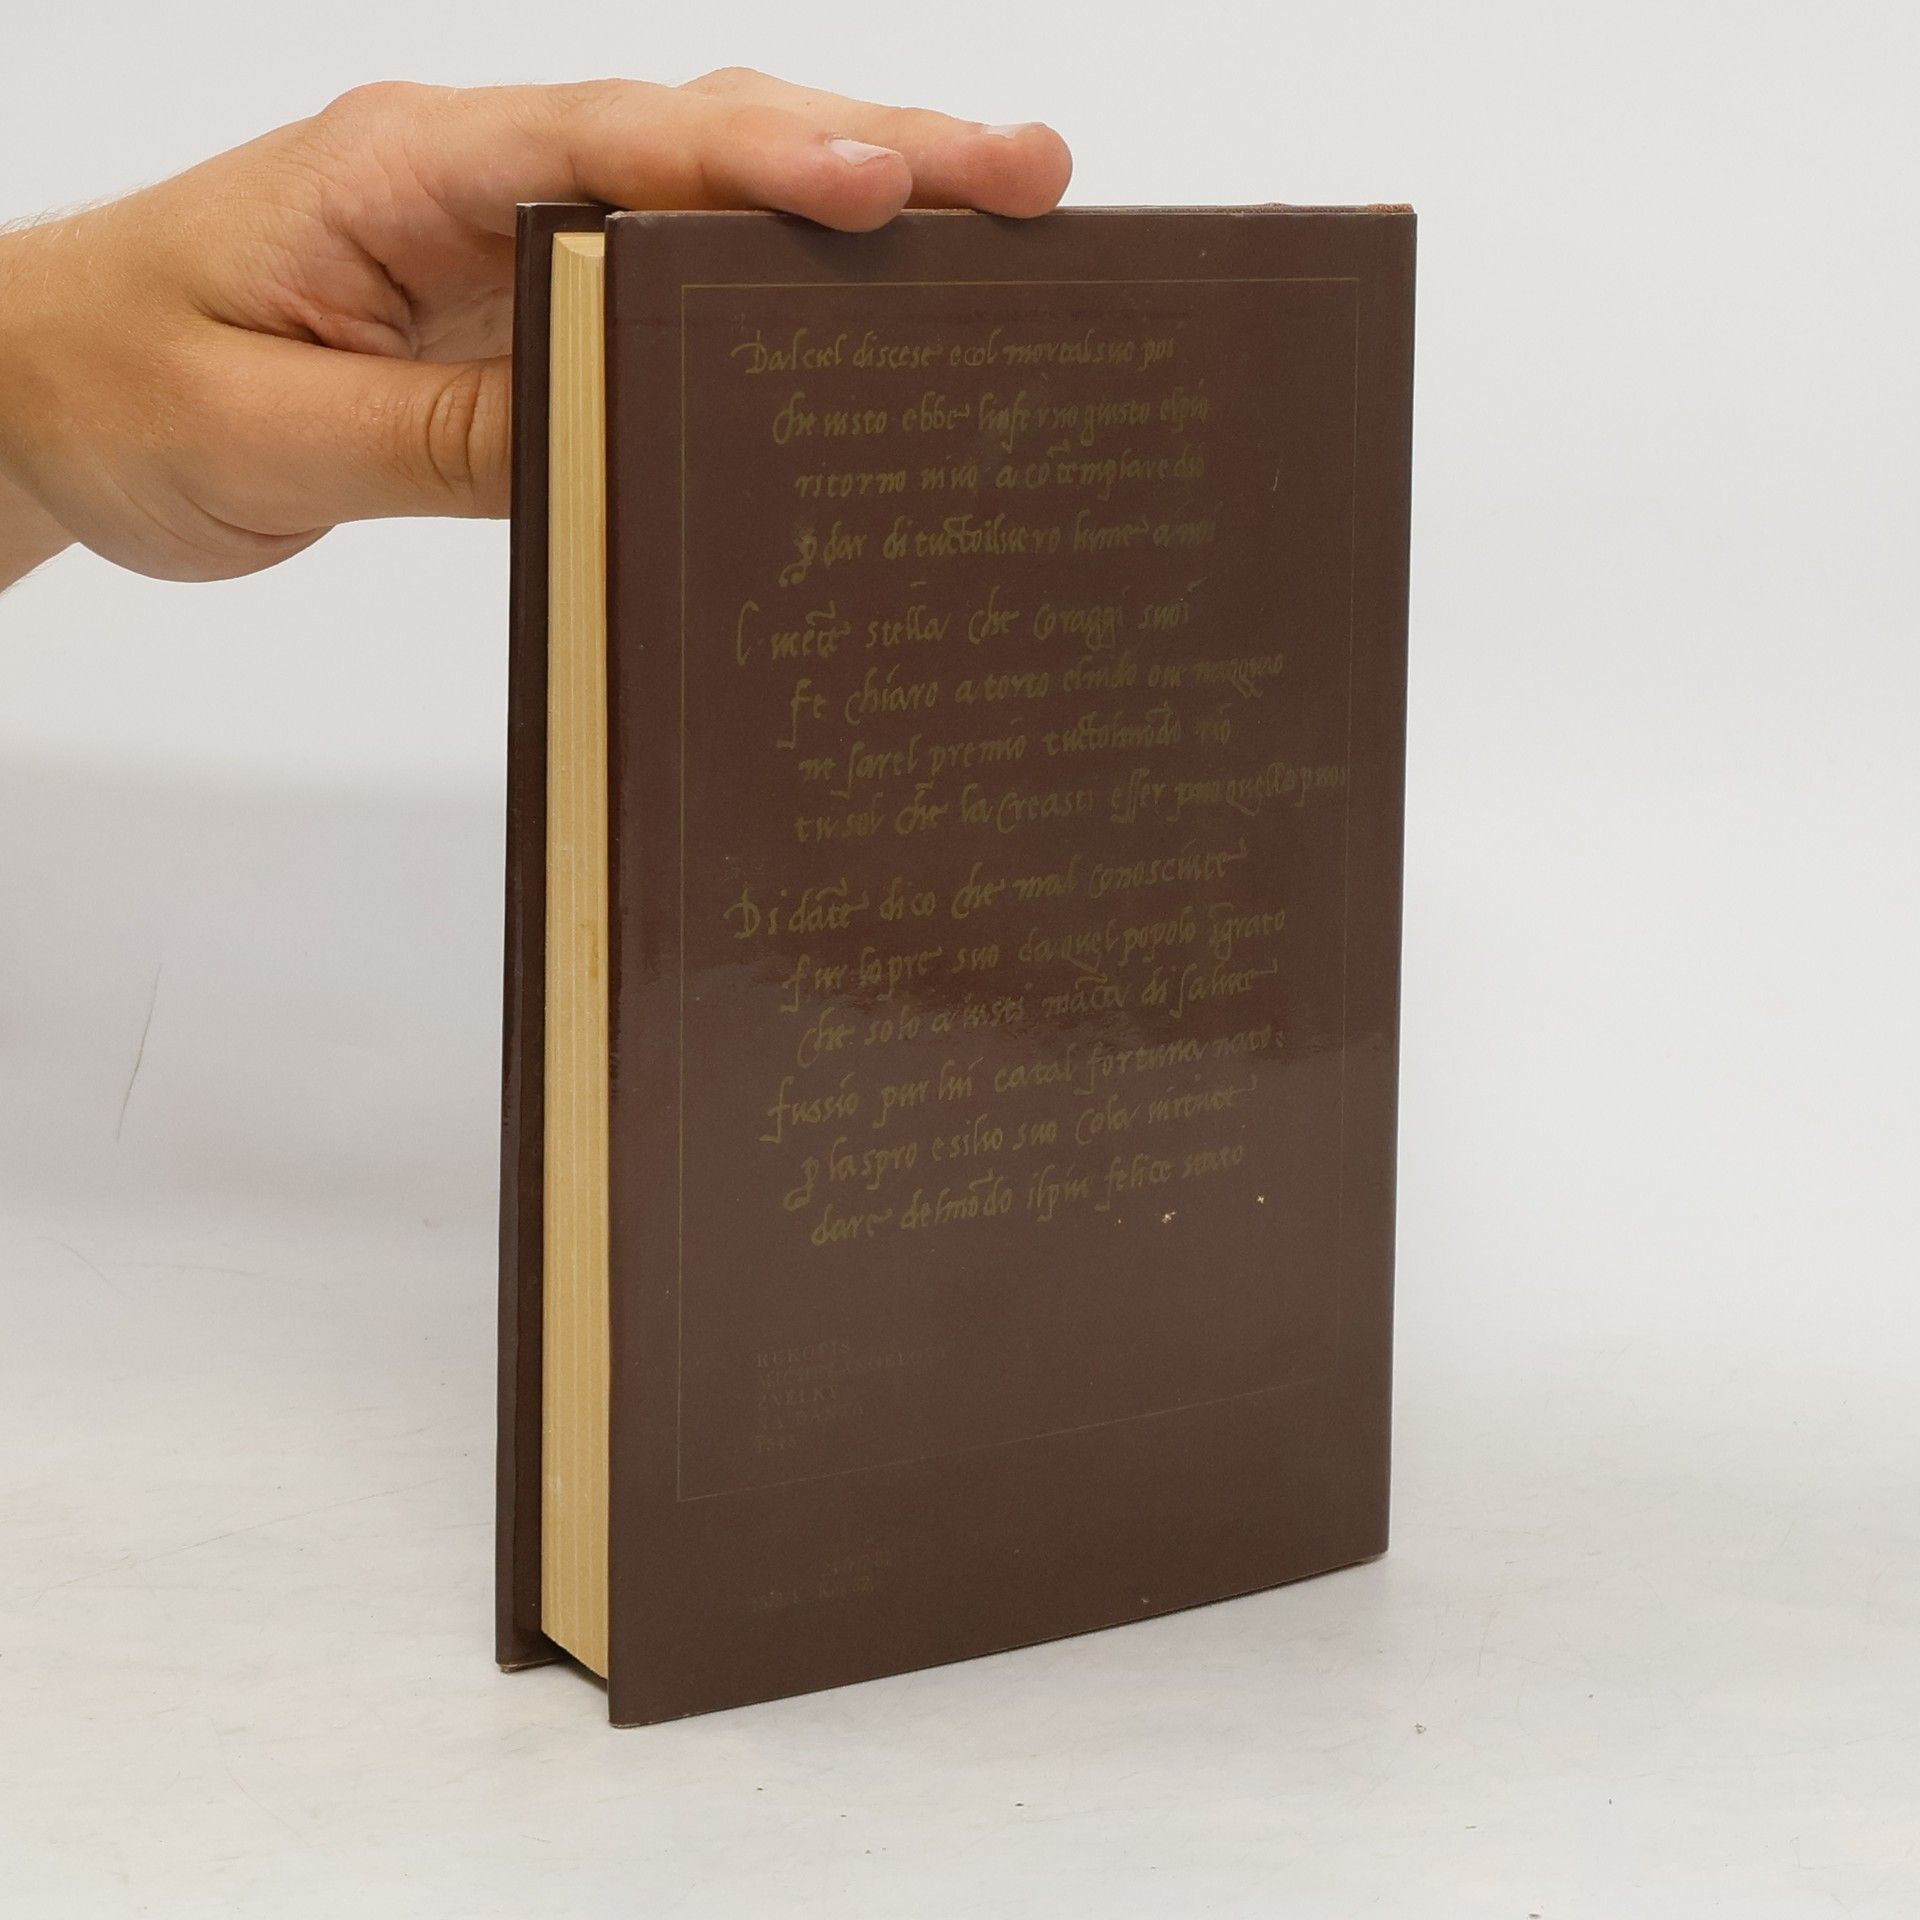 Dal ciel discese e col mortal suo poi
che uisto ebbe linferno giusto elpio
ritorno uiuo a cō̃templare dio
p dar di tuctoiluero lume a noi
L ucẽte stella che co raggi suoi
fe chiaro a torto elnido oue nacqu io
ne sarel premio tuctolmõdo rio
tu sol che la creasti esser puoi quello puoi
Di dãte dico che mal conosciute
fur lopre suo da quel popolo ĩgrato
che solo a iusti mãca di salute
fussio pur lui ca tal fortuna nato:
p laspro esilio suo co la uirtute
dare delmõdo ilpiu felice stato
RUKOPIS
MICHELANGELOVY
ZNĚLKY
NA DANTA